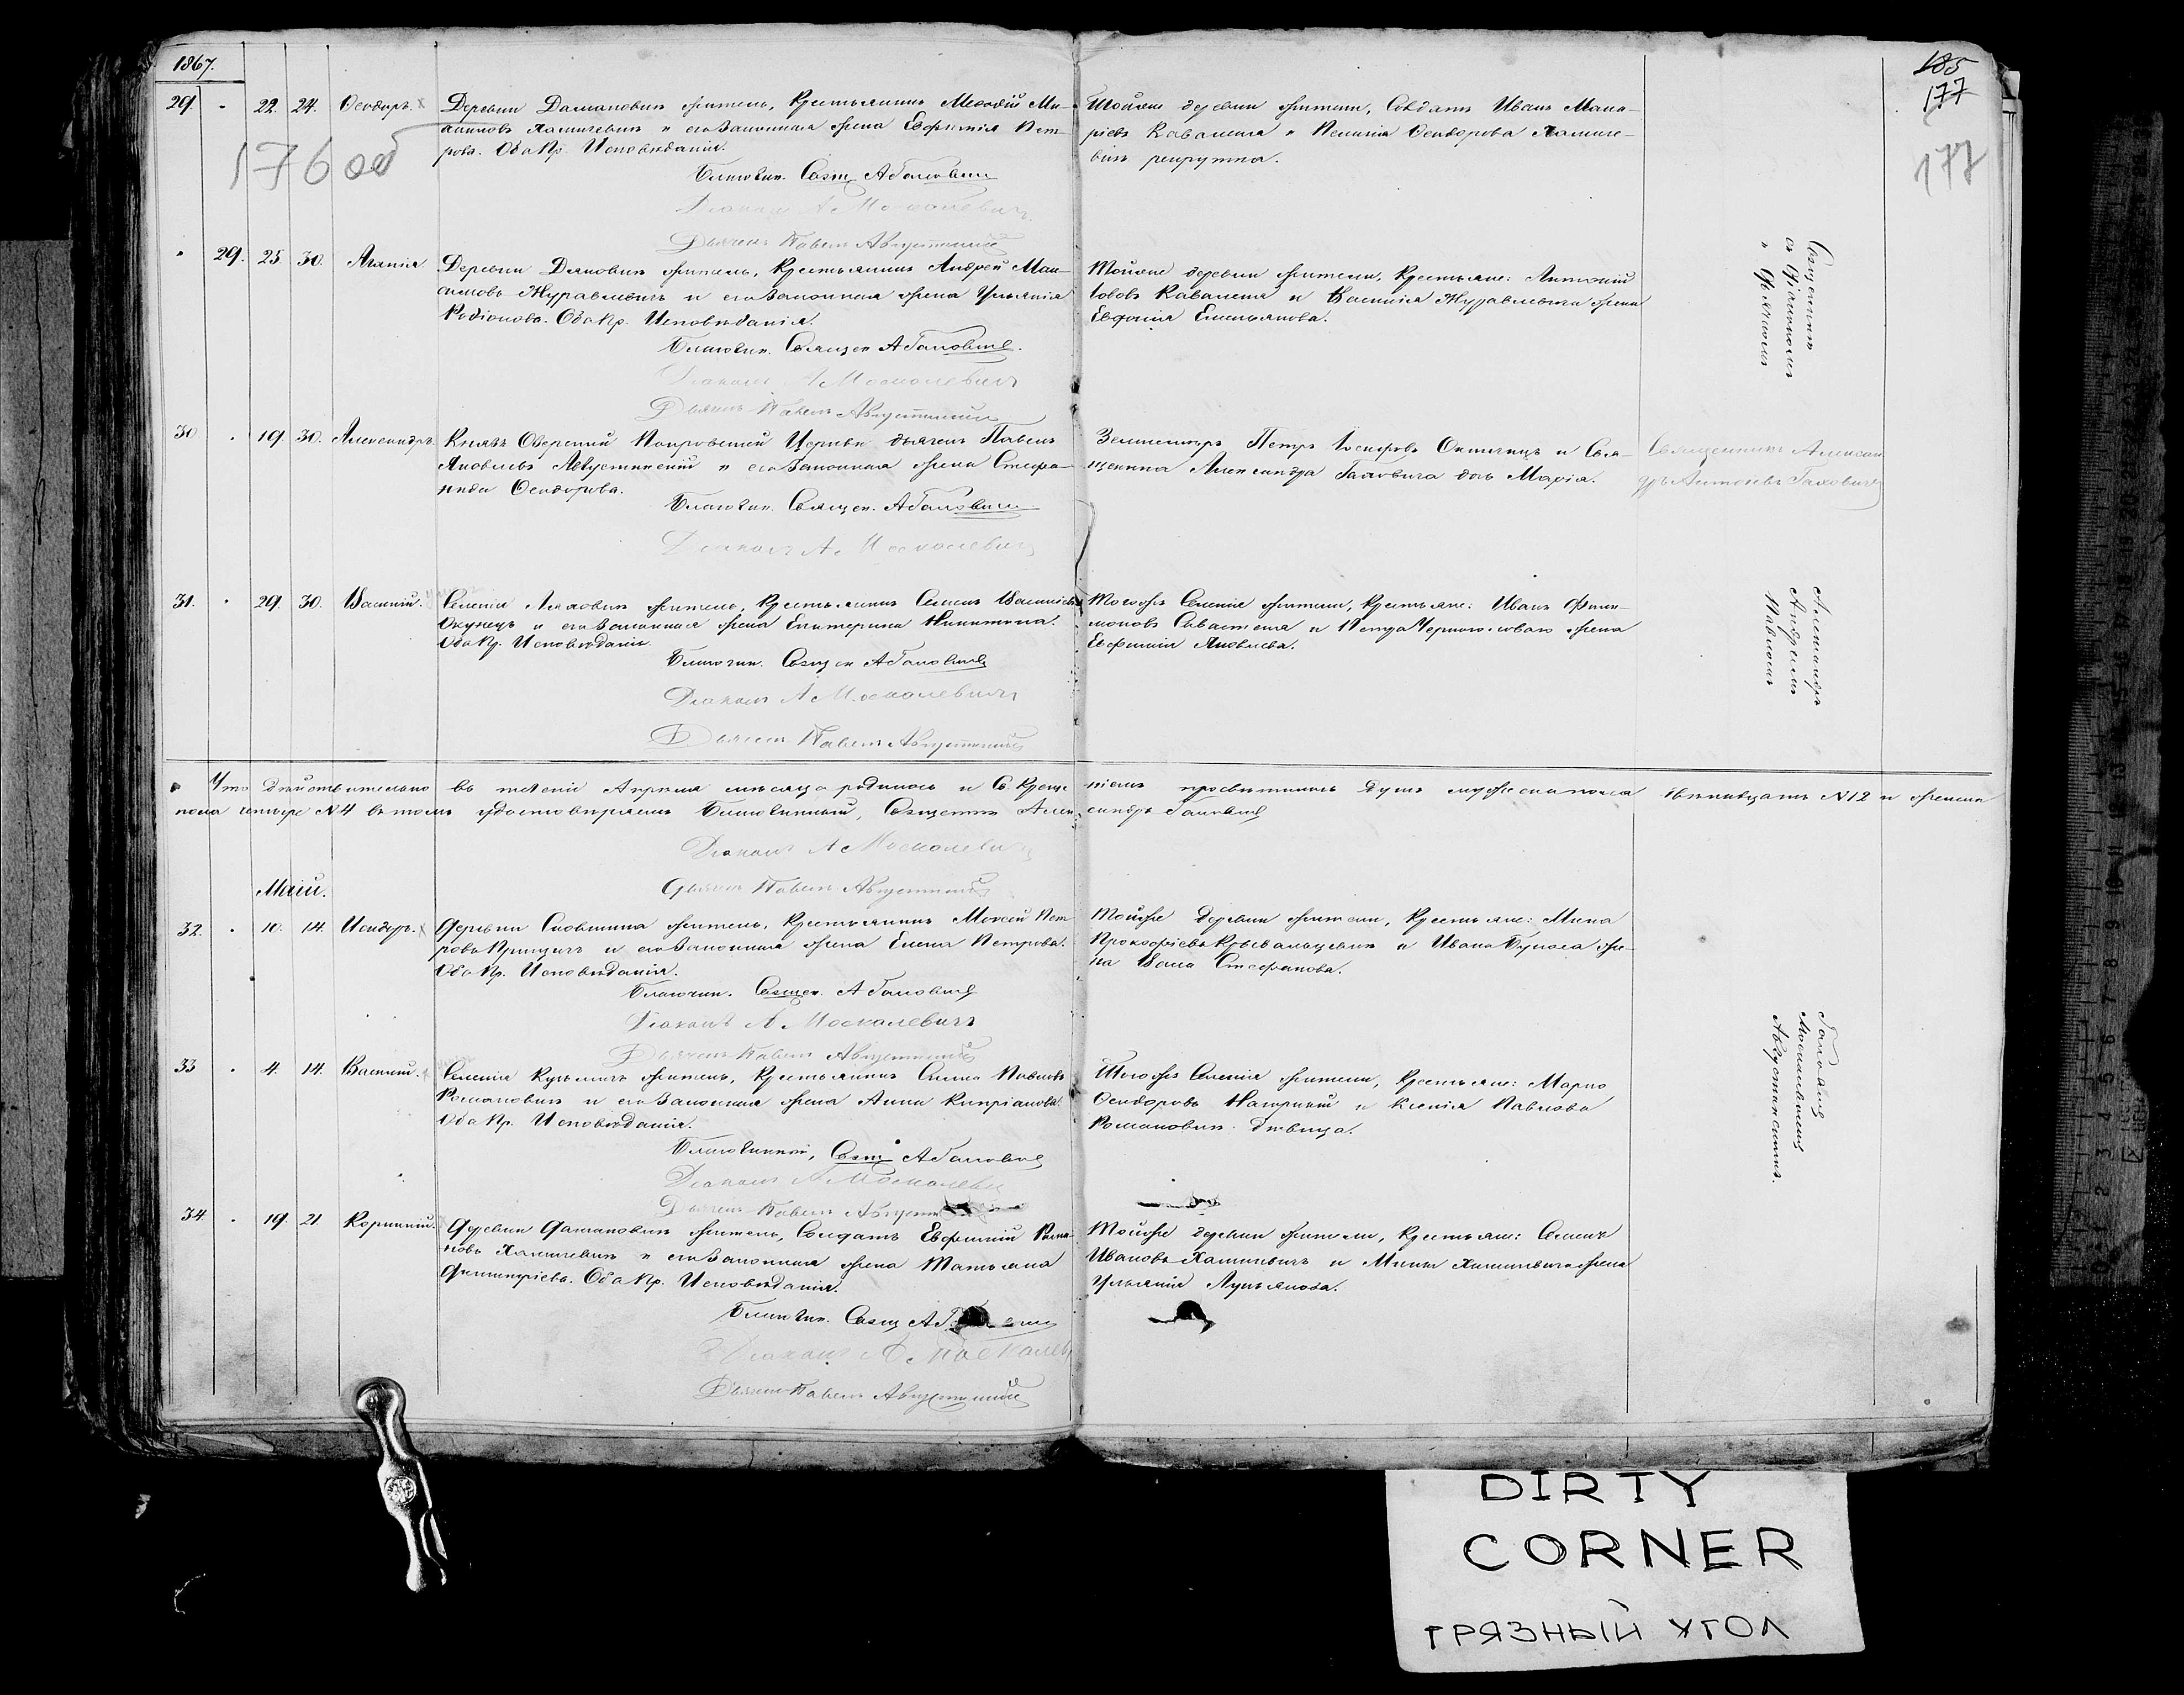 1867.
185
177
177
176 об
29. 22. 24. Ѳеодоръ. Деревни Дамановичъ житель, Крестьянинъ Меѳодій Ми-
Хаминевичъ и его законная жена Евфимія Пет-
рова. Оба Пр. Исповѣданія.
Благочин. Свящ. А Галовичъ
Діаконъ А Москалевичъ
Дьячекъ Павелъ Августинскій
Тойже деревни жители, Солдатъ Иванъ Мака-
ріевъ Каваленя и Ѳеодорова
рекрутка.
29. 25. 30. Агапія. Деревни Дяковичъ житель, Крестьянинъ Андрей Мак-
симовъ Журавлевичъ и его законная жена Ульянія
Родіонова. Оба Пр. Исповѣданія.
Благочин. Священ. А Галовичъ.
Діаконъ А Москалевичъ
Дьячекъ Павелъ Августинскій
Тойже деревни жители, Крестьяне: Антоній
Іововъ Каваленя и Василія Журавлевича жена
Евфимія Емельянова.
Священникъ
съ Діакономъ
и Дьячкомъ
30. 19. 30. Александръ. Князь Озерской Покровской Церкви дьячекъ Павелъ
Яковлевъ Августинскій и его законная жена Стефа-
нида Ѳеодорова.
Благочин. Священ. А Галовичъ
Діаконъ А Москалевичъ
Землемѣръ Петръ Іосифовъ и Свя-
щенника Александра Галовича дочь Марія.
Священникъ Алексан
дръ Антоніевъ Галовичъ
31. 29. 30. Василій. Селенія Ляховичъ житель, Крестьянинъ Семенъ Васильевъ
Окунецъ и его законная жена Екатерина Никитина.
Оба Пр. Исповѣданія.
Благочин. Священ А Галовичъ
Діаконъ А Москалевичъ
Дьячекъ Павелъ Августинскій
Тогоже Селенія жители, Крестьяне: Иванъ Фили-
моновъ Савастеня и Петра Черноголоваго жена
Евфимія Яковлева.
Александръ
Андреемъ
Павломъ
Что дѣйствительно въ теченіи Апрѣля мѣсяца родилось и Св. Креще-
ніемъ просвѣтилось душъ мужеска пола двѣнадцать N12 и женска
пола четыре N4 въ томъ удостовѣряемъ Благочинный, Священникъ Алек-
сандръ Галовичъ
Діаконъ А Москалевичъ
Дьячекъ Павелъ Августинскій
Маій.
32. 10. 14. Исидоръ. Деревни житель, Крестьянинъ Моисей Пет-
ровъ и его законная жена Елена Петрова.
Оба Пр. Исповѣданія.
Благочин. Священ. А Галовичъ
Діаконъ А Москалевичъ
Дьячекъ Павелъ Августинскій
Тойже деревни жители, Крестьяне: Мина
Прокофіевъ Крывальцевичъ и Ивана Букаса же-
на Стефанова.
33. 4. 14. Василій. Селенія Кузьмичъ житель, Крестьянинъ Павловъ
Романовичъ и его законная жена Анна Кипріанова.
Оба Пр. Исповѣданія.
Благочинный, Свящ А Галовичъ
Діаконъ А Москалевичъ
Дьячекъ Павелъ Августин
Тогоже Селенія жители, Крестьяне: Марко
Ѳеодоровъ и Ксенія Павлова
Романовичъ дѣвица.
Галовичъ
Москалевичъ
Августинскимъ.
34. 19. 21. Корнилій. Деревни Дамановичъ житель, Солдатъ Евфимій Рома-
новъ Хаминевичъ и его законная жена Татьяна
Димитріева. Оба Пр. Исповѣданія.
Благочин. Свящ А
Діаконъ А Москалев
Дьячекъ Павелъ Августинскій
Тойже деревни жители, Крестьяне: Семенъ
Ивановъ Хаминевичъ и Мины Хаминевича жена
Ульянія Лукьянова.
DIRTY
CORNER
ГРЯЗНЫЙ УГОЛ